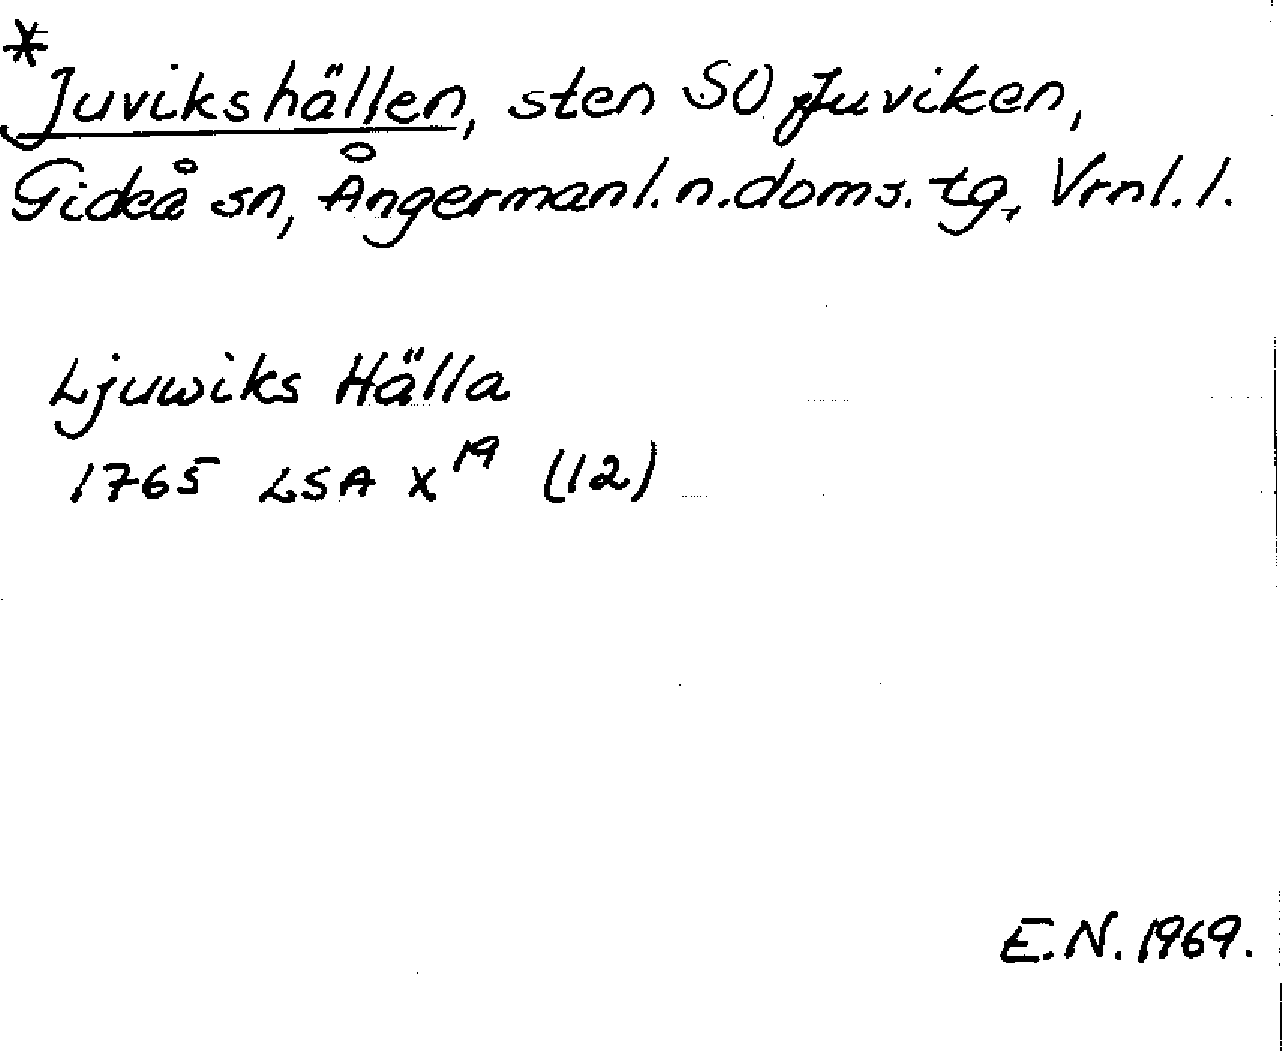 *
Juvikshällen, sten SO Juviken,
Gideå sn, Ångermanl. n. doms. tg, Vrnl. l.
Ljuwiks Hälla
1765 LSA X19 (12)
E.N. 1969.